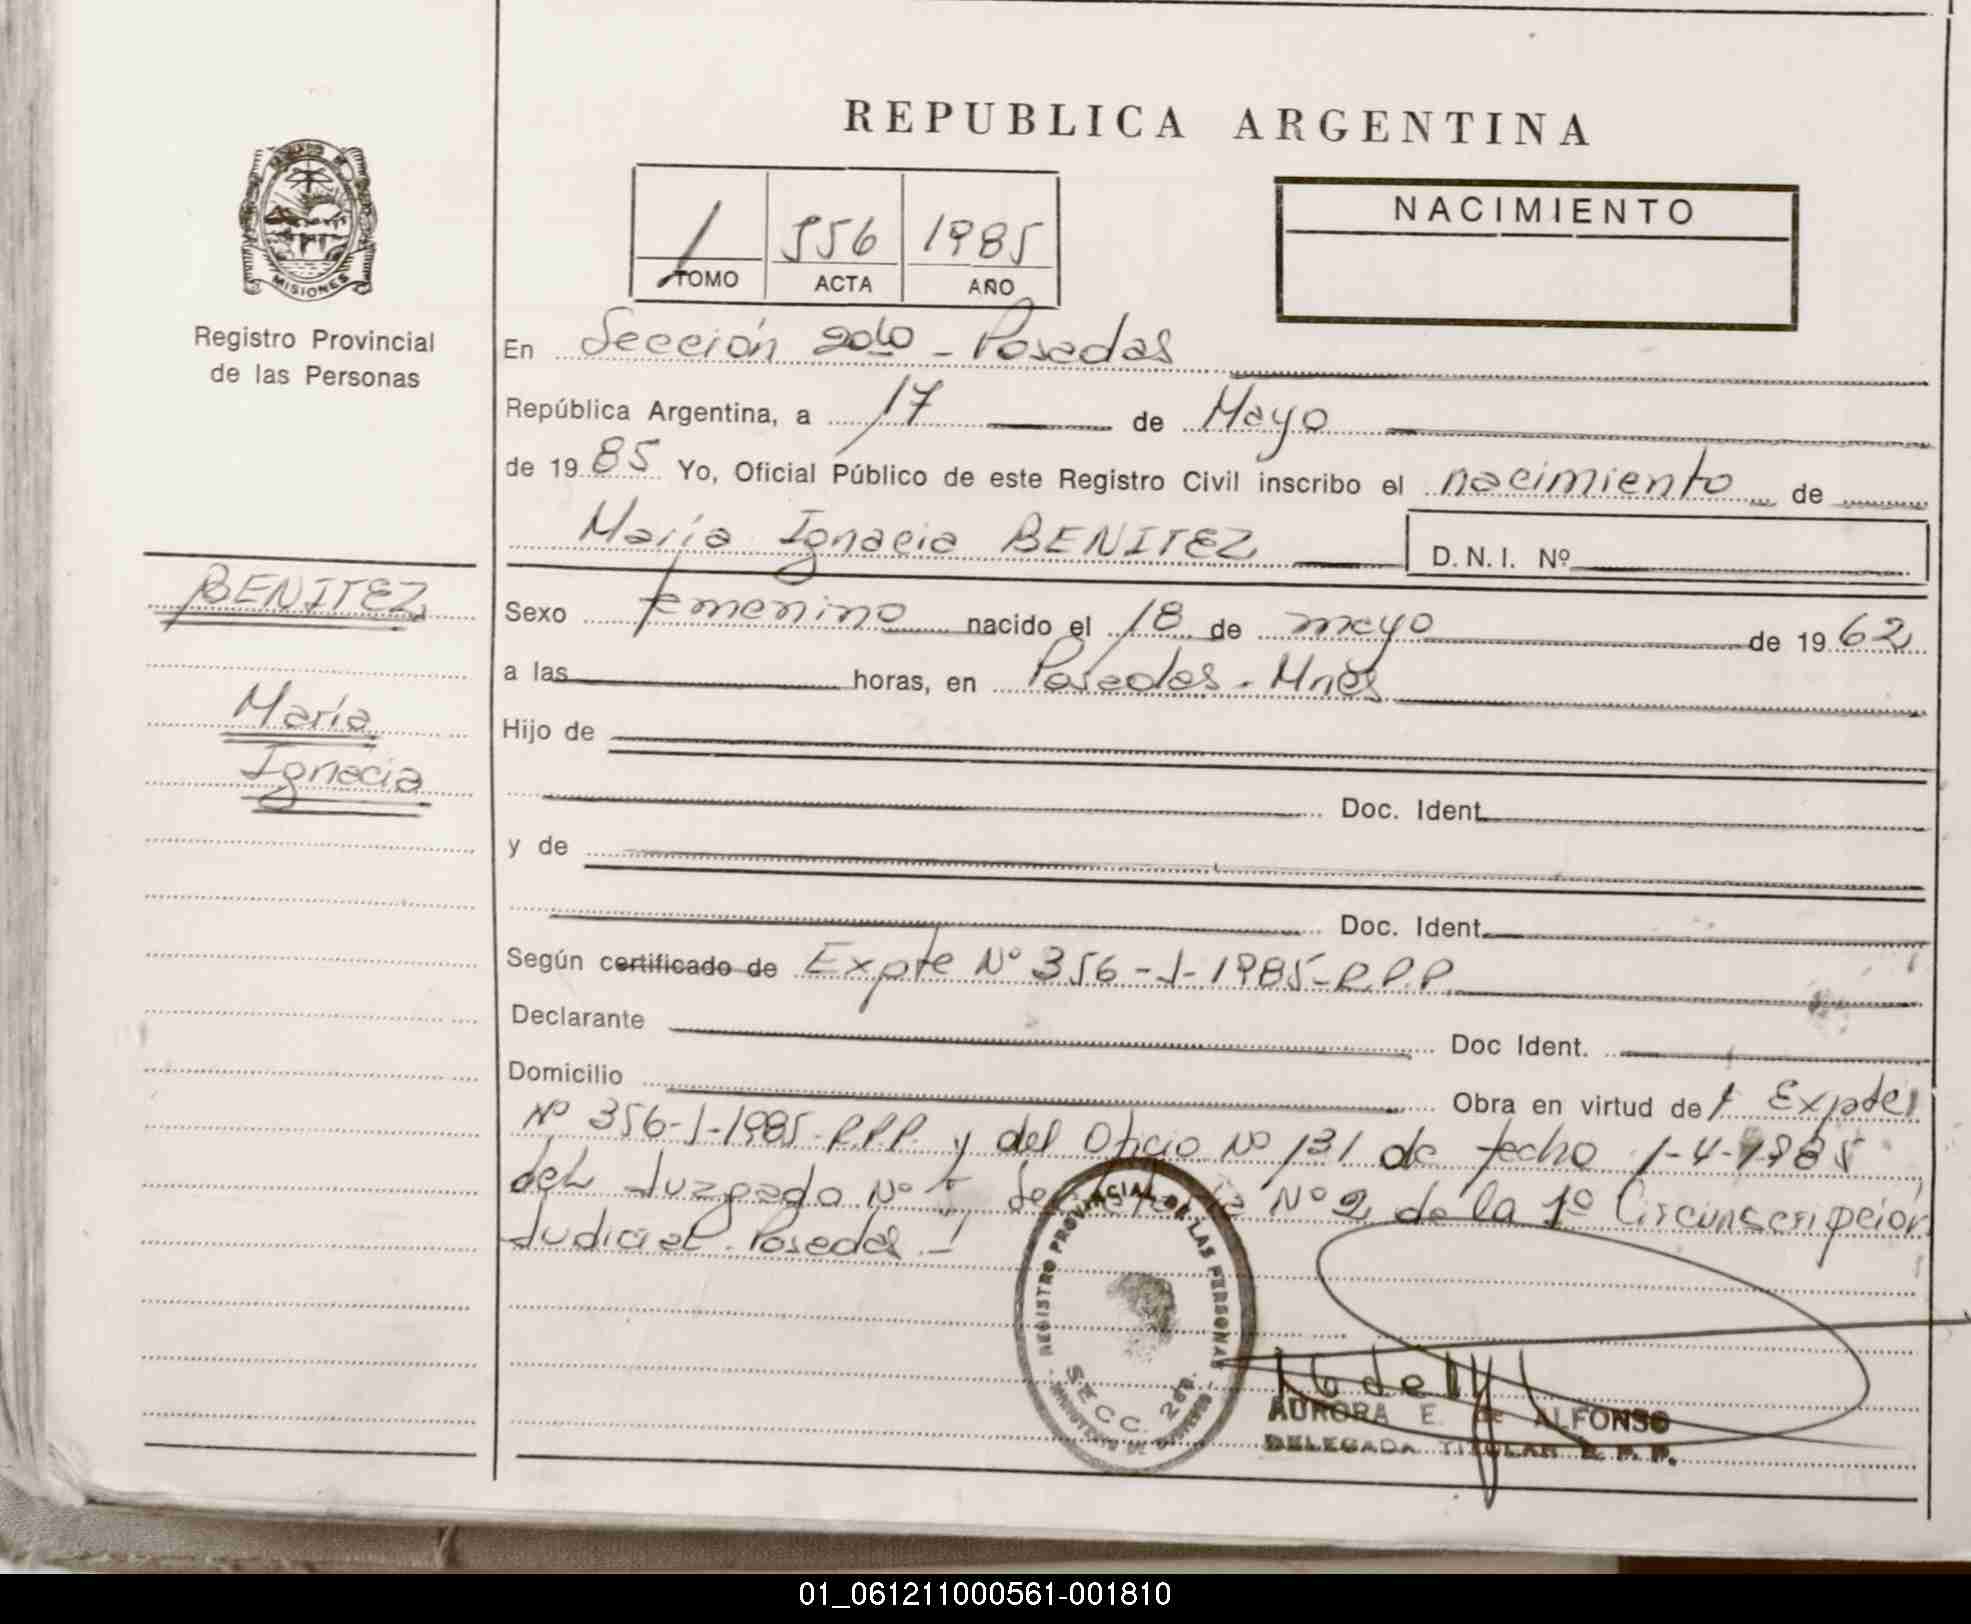 REPUBLICA ARGENTINA
1 556 1985
TOMO ACTA AÑO
NACIMIENTO
MISIONES
Registro Provincial
de las Personas
BENITEZ
María
Ignacia
En Sección 2da - Posadas
República Argentina, a 17 de Mayo
de 1985 Yo, Oficial Público de este Registro Civil inscribo el nacimiento de
María Ignacia BENITEZ D.N.I. Nº
Sexo femenino nacido el 18 de mayo de 1962
a las horas, en Posadas - Mnes
Hijo de
Doc. Ident.
y de
Doc. Ident.
Según certificado de Expte Nº 356-J-1985-R.P.P.
Declarante Doc Ident.
Domicilio Obra en virtud de Expte
Nº 356-J-1985-R.P.P. y del Oficio Nº 131 de fecha 1-4-1985
del Juzgado Nº Secretaría Nº 2 de la 1º Circunscripción
Judicial - Posadas -
REGISTRO PROVINCIAL DE LAS PERSONAS
SECC. 2da.
AURORA E. de ALFONSO
DELEGADA TITULAR R. P. P.
01_061211000561-001810